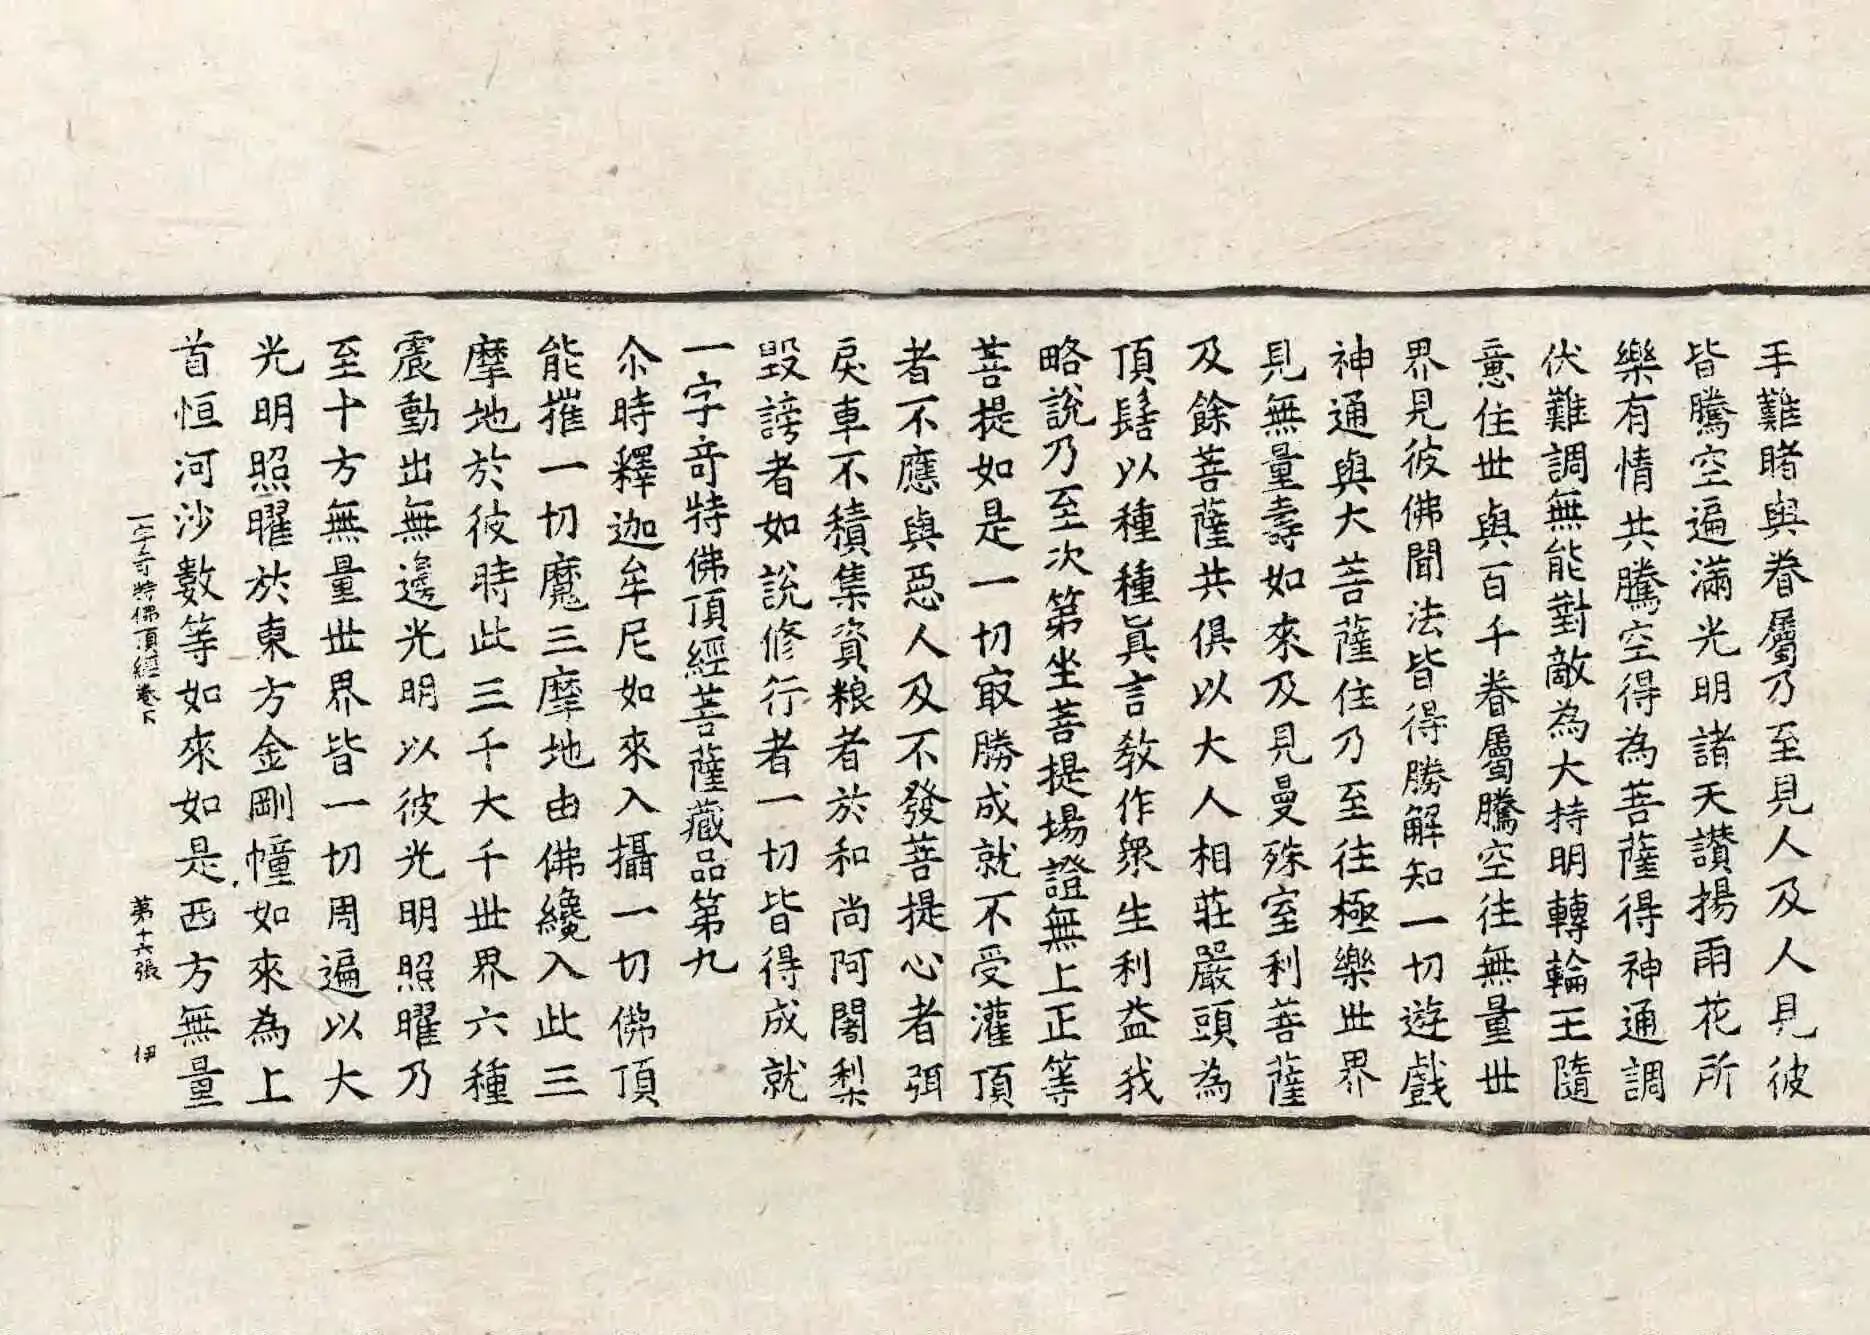 手難睹與眷屬乃至見人及人見彼
皆騰空遍滿光明諸天讃揚雨花所
樂有情共騰空得為菩薩得神通調
伏難調無能對敵為大持明轉輪王隨
意住世與百千眷屬騰空往無量世
界見彼佛聞法皆得勝解知一切遊戲
神通與大菩薩住乃至往極樂世界
見無量壽如來及見曼殊室利菩薩
及餘菩薩共俱以大人相莊嚴頭為
頂髻以種種真言教作衆生利益我
略說乃至次第坐菩提場證無上正等
菩提如是一切㝡勝成就不受灌頂
者不應與惡人及不發菩提心者弭
戾車不積集資粮者於和尚阿闍梨
毀謗者如說修行者一切皆得成就
一字奇特佛頂經菩薩藏品第九
尒時釋迦牟尼如來入攝一切佛頂
能摧一切魔三摩地由佛纔入此三
摩地於彼時此三千大千世界六種
震動出無邊光明以彼光明照曜乃
至十方無量世界皆一切周遍以大
光明照曜於東方金剛幢如來為上
首恒河沙數等如來如是西方無量
一字奇特佛頂經卷下 第十六張 伊